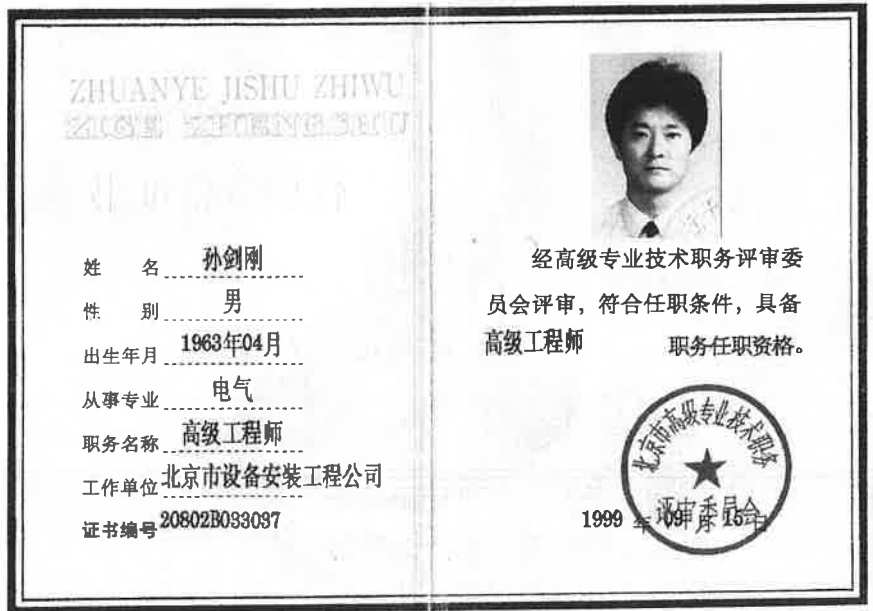 ZHUANYE JISHU ZHIWU
ZIGE ZHENGSHU
姓 名 孙剑刚
性 别 男
出生年月 1963年04月
从事专业 电气
职务名称 高级工程师
工作单位 北京市设备安装工程公司
证书编号 20802B033037
经高级专业技术职务评审委
员会评审，符合任职条件，具备
高级工程师 职务任职资格。
北京市高级专业技术职务
评审委员会
1999 年 09 月 15 日